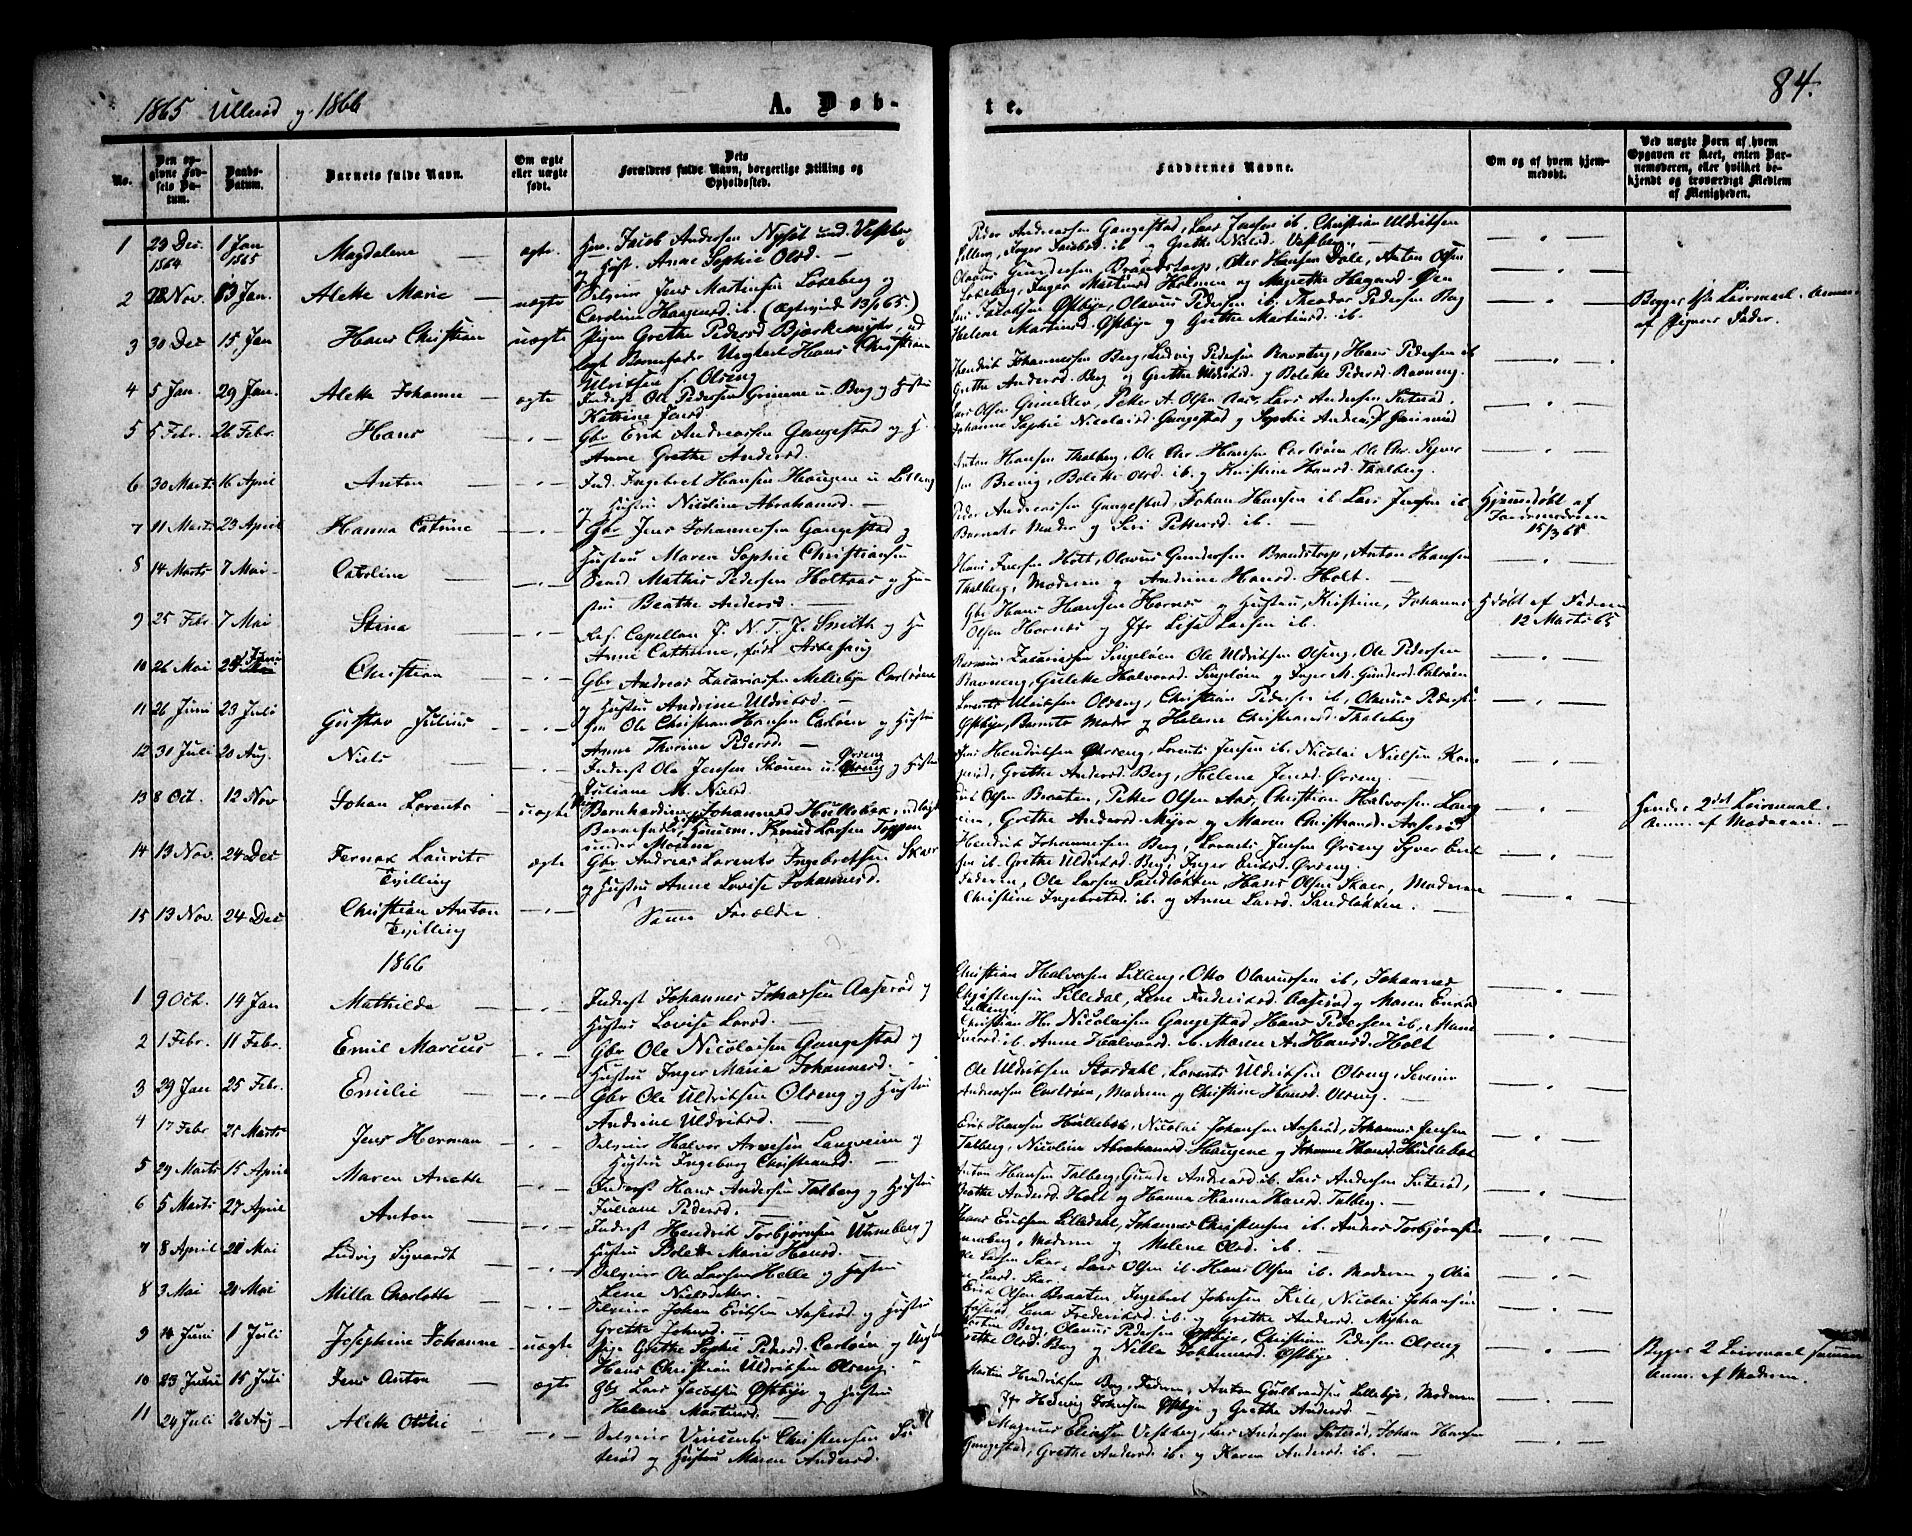 1865 Ullerød og 1866
A. Døb-
te.
84.
No.
Den op-
givne Fød-
sels Da-
tum.
Daabs-
Datum.
Barnets fulde Navn.
Om ægte
eller uægte
født.
Dets
Forældres fulde Navn, borgerlige Stilling og
Opholdssted.
Faddernes Navne.
Om og af hvem hjem-
medøbt.
Ved uægte Børn af hvem
Opgaven er skeet, enten Bar-
nemoderen, eller hvilket be-
kjendt og troværdigt Medlem
af Menigheden.
1 29 Dec 1864 1 Jan 1865 Magdalene ægte Hm. Jacob Andersen Nysæt und. Vestberg
og Hust. Anne Sophie Olsd.
Peder Andreassen Gangestad, Lars Jensen ib. Christian Uldriksen
Lilleng, Inger Jacobsd. ib. og Grethe Nielsd. Vestberg
2 28 Nov. 13 Jan. Alette Marie uægte Selveier Jens Martinsen Løseberg og
Caroline Haagensd. ib. (Ægteviede 13/1 65.)
Olavus Gundersen Brandstorp, Otter Hansen Dale, Anton Olsen
Løseberg, Inger Martinsd. Holmen og Magrethe Haagensd.
3 30 Dec 15 Jan Hans Christian uægte Pigen Grethe Pedersd Bjørkemyhr, ud
lagt Barnefader Ungkarl Hans Christian
Uldriksen f. Olseng
Jacobsen Østbye, Olavus Pedersen ib. Theodor Pedersen Berg
Helene Martinsd. Østbye og Grethe Martinsd. ib.
Begges 1ste Leiermaal. Anm.
af Pigens Fader.
4 5 Jan. 29 Jan. Alette Johanne ægte Inderst Ole Pedersen Grimene u. Berg og Hust
Katrine Larsd
Hendrik Johannessen Berg, Ludvig Pedersen Ravneng, Hans Pedersen ib
Grethe Andersd. Berg og Grethe Uldriksd. og Bolette Pedersd. Ravneng.
5 5 Febr. 26 Febr. Hans Gbr Erik Andreassen Gangestad og H.
Anne Grethe Andersd.
Lars Olsen Petter A. Olsen Aas, Lars Andersen Sæterød.
Johanne Sophie Nicolaisd Gangestad og Sophie
6 30 Marts 16 April Anton Ind. Ingebret Hansen Haugene u Lilleng
og Hustru Nicoline Abrahamsd.
Anton Hansen Thalberg, Ole Chr Hansen Carlsøen, Ole Chr. Syver
sen Breng, Bolette Olsd. ib. og Kristine Hansd. Thalberg.
7 11 Marts 23 April Hanna Catrine Gbr Jens Johannessen Gangestad og
Hustru Maren Sophie Christiansen
Peder Andreassen Gangestad, Johan Hansen ib. Lars Jensen ib
Barnets Moder og Siri Pettersd. ib.
Hjemmedøbt af
Jordmoderen
15/3 65
8 14 Marts 7 Mai Caroline Mathis Pedersen Holtaas og Hu-
stru Beathe Andersd.
Hans Iversen Holt, Olavus Gundersen Brandstorp, Anton Hansen
Thalberg, Moderen og Andrine Hansd. Holt.
9 25 Febr 7 Mai Stina Res. Capellan J. N. T. J. Smith og Hu
Anne Cathrine, født Astesang
Gbr Hans Hansen Hornes og Hustru, Kristine, Johannes
Olsen Hornes og Jfr Lisa Larsen ib.
Hjdøbt af Faderen
12 Marts 65
10 26 Mai Christian Gbr Andreas Zacariassen Mellebye Carlsøen
og Hustru Andrine Uldriksd.
Rasmus Zacariassen Singeløen Ole Uldriksen Olseng, Ole Pedersen
Ravneng, Gulette Halvorsd. Singeløen og Inger M. Gundersd. Carlsøen
11 26 Juni 23 Juli Gustav Julius Gm Ole Christian Hansen Carlsøen og Hustru
Anne Thorine Pedersd.
Lorents Uldriksen Olseng, Christian Pedersen ib, Olavus Pedersen
Østbye, Barnets Moder og Helene Christiansd. Thaleberg
12 31 Juli 20 Aug. Niels Inderst Ole Jensen Skouen u. Ørseng og Hustru
Juliane M. Nielsd.
Jens Hendriksen Ørseng, Lorents Jensen ib. Nicolai Nielsen
Grethe Andersd. Berg, Helene Jensd. Ørseng.
13 8 Oct. 12 Nov Johan Lorents uægte Bernhardine Johannesd Hullebæk, udlagt
Barnefader, Huusm. Knud Larsen Toppen
under Mosene
Erik Olsen Braaten, Petter Olsen Aas, Christian Halvorsen Lang
veim, Grethe Andersd. Myra og Maren Christiansd. Aaserød
Hendes 2det Leiermaal.
Anm. af Moderen.
14 13 Nov. 24 Dec Fernax Laurits
Tvilling ægte Gbr Andreas Lorents Ingebretsen Skaar
og Hustru Anne Lovise Johannesd.
Hendrik Johannessen Berg, Lorents Jensen Ørseng Syver Erik
sen ib. Grethe Uldriksd. Berg, Inger Eriksd. Ørseng.
15 13 Nov. 24 Dec Christian Anton
Tvilling Samme Forældre
Faderen, Ole Larsen Sandløkken, Hans Olsen Skaar, Moderen
Christine Ingebretsd. ib. og Anne Larsd. Sandløkken.
1866
1 9 Oct. 14 Jan Mathilde Inderst Johannes Johansen Aaserød og
Hustru Lovise Larsd.
Christian Halvorsen Lilleng, Otto Olavussen ib, Johannes
Christensen Lilledal, Lene Fredriksd. Aaserød og Maren Eriksd
Lilleng.
2 1 Febr. 11 Febr. Emil Marcus Gbr Ole Nicolaisen Gangestad og
Hustru Inger Maria Johannesd.
Christian Hr. Nicolaisen Gangestad Hans Pedersen ib,
ib. Anne Halvorsd. og Maren A. Hansd. Holt
3 29 Jan 25 Febr. Emilie Gbr Ole Uldriksen Olseng og Hustru
Andrine Uldriksd.
Ole Uldriksen Stordahl, Lorents Uldriksen Olseng, Severin
Andreassen Carlsøen, Moderen og Christine Hansd. Olseng.
4 17 Febr 25 Marts Jens Herman Selveier Halvor Arnesen Langveim og
Hustru Ingeborg Christiansd.
Erik Hansen Hullebæk, Nicolai Johansen Aaserød, Johannes Jensen
Talberg, Nicoline Abrahamsd Haugene og Johanne Hansd. Hullebæk
5 29 Marts 15 April Maren Anette Inderst Hans Andersen Talberg og Hustru
Juliane Pedersd.
Anton Hansen Talberg, Gunde Andreasd ib. Lars Andersen Sæterød,
Beathe Andersd. Holt og Hanna Hanna Hansd. Talberg.
6 5 Marts 27 April Anton Inderst Hendrik Torbjørnsen Unneberg og
Hustru Bolette Marie Hansd.
Hans Eriksen Lilledahl, Johannes Christensen ib. Anders Torbjørnsen
Unneberg, Moderen og Malene Olsd. ib.
7 8 April 20 Mai Ludvig Sigvardt Selveier Ole Larsen Helle og Hustru
Lene Nielsdatter.
Ole Larsen Skar, Lars Olsen ib. Hans Olsen ib. Moderen og Olia
Larsd. Skar.
8 3 Mai 20 Mai Milla Charlotte Selveier Johan Eriksen Aaserød og Hustru
Grethe Johnsd.
Erik Olsen Braaten, Ingebret Johnsen Kile, Nicolai Johansen
Aaserød Lena Frederiksd. ib. og Grethe Andersd. Myhra
9 14 Juni 1 Juli Josephine Johanne uægte Pige Grethe Sophie Pedersd. Carlsøen og Ungk
Hans Christian Uldriksen Olseng.
Berg, Olavus Pedersen Østbye, Christian Pedersen Olseng
Grethe Olsd. Berg og Nilla Johannesd. Østbye.
Begges 2 Leiermaal sammen
Anm. af Moderen.
10 23 Juni 15 Juli Jens Anton ægte Gbr Lars Jacobsen Østbye og Hustru
Helene Martinsd.
Martin Hendriksen Bøg, Faderen, Anton Gulbrandsen Lillebye, Moderen
Jfr Hedvig Johnsen Østbye og Grethe Andersd.
11 24 Juli 26 Aug Alette Otilie Selveier Vincents Christensen Sæ
terød og Hustru Maren Andersd.
Magnus Eliassen Vestberg, Lars Andersen Sæterød, Johan Hansen
Gangestad, Grethe Andersd ib. og Karen Andersd. ib.